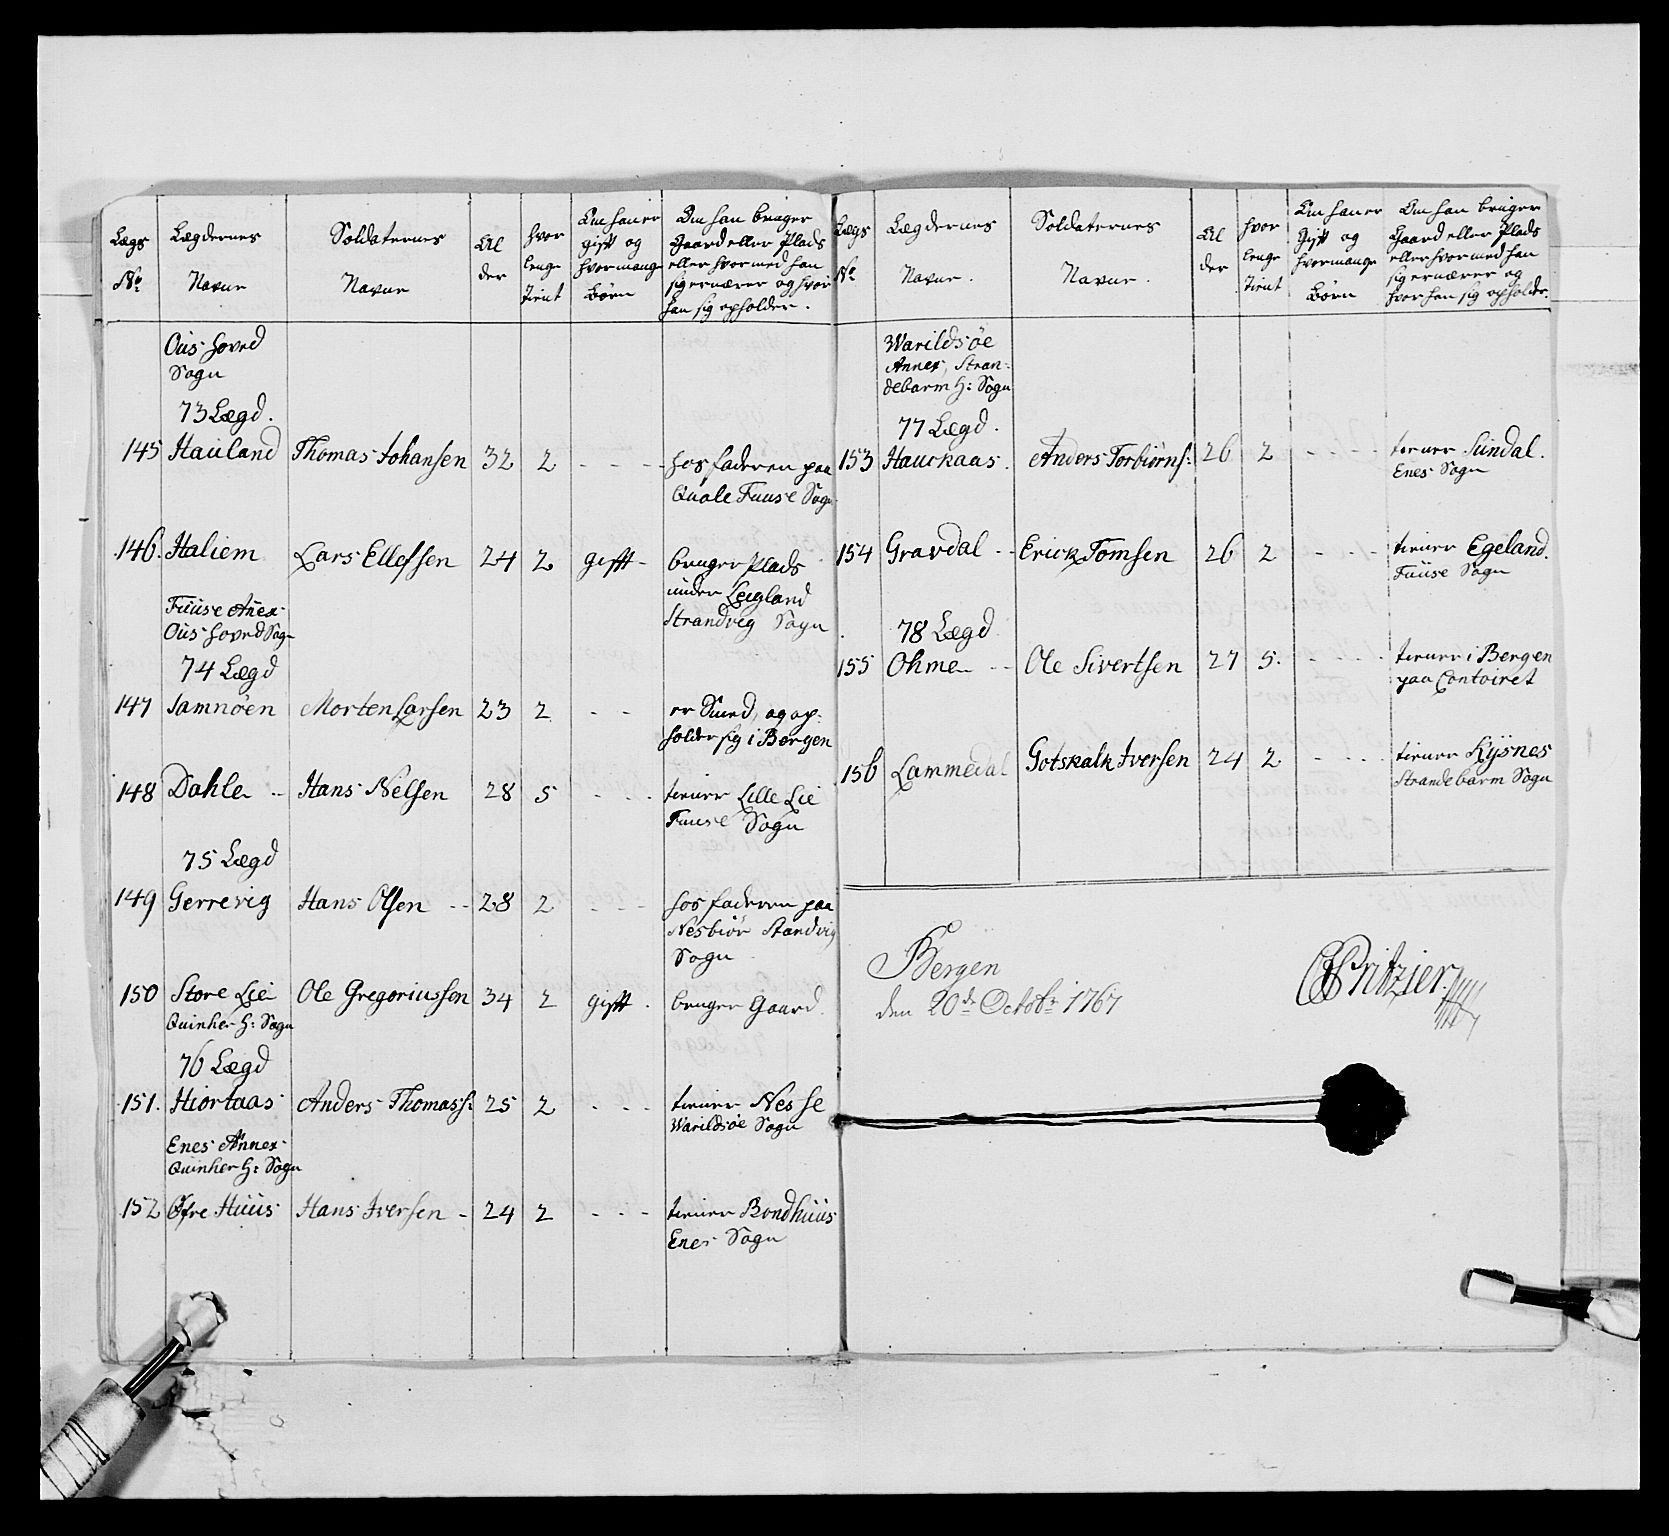 Lægs
No:
Lægdernes
Navne
Soldaternes
Navne
Al
der
hvor
lenge
tient
Om han er
gift og
hvormange
Børn
Om han bruger
Gaard eller Plads
eller hvormed han
sig ernærer og hvor
han sig opholder.
Ous hoved
Sogn
73 Lægd.
145 Hauland Thomas Johansen 32 2 - - - - hos faderen paa
Quale Fuuse Sogn
146. Haliem Lars Ellefsen 24 2 gifft - bruger Plads
under Leigland
Strandvig Sogn
Fuuse Anex
Ous hoved Sogn
74 Lægd
147 Samnøen Morten Larsen 23 2 - - er Smed, og op-
holder sig i Bergen
148 Dahle - Hans Nelsen 28 5 - - - tiener Lille Lie
Fuuse Sogn
75 Lægd
149 Gerrevig Hans Olsen - - 28 2 - - - hos faderen paa
Nesbiør Standvig
Sogn
150 Store Lie Ole Gregoriussen 34 2 gifft. bruger Gaard.
Quinher H: Sogn
76 Lægd
151. Hiortaas Anders Thomass: 25 2 - - - tiener Nesse
Warildsøe Sogn
Enes Annex
Quinher H: Sogn
152 Øfre Huus Hans Iversen - 24 2 - - - tiener Bondhuus
Enes Sogn
Lægs
No
Lægdernes
Navne.
Soldaternes
Navne.
Al
der
hvor
lenge
tient
Om han er
Gift og
hvormange
Børn
Om han bruger
Gaard eller Plads
eller hvormed han
sig ernærer og
hvor han sig opholder.
Warildsøe
Annex, Stran-
debarm H: Sogn
77 Lægd.
153 Hauckaas. Anders Torbiørns: 26 2 - - - - tiener Sundal.
Enes Sogn
154 Gravdal - - Erick Tomsen 26 2 - - - tiener Egeland.
Fuuse Sogn
78 Lægd
155 Ohme - - Ole Sivertsen 27 5. - - - - tiener i Bergen
paa Contoiret
156 Lammedal Gotskalk Iversen 24 2 - - - - tiener Kysnes
Strandebarm Sogn
Bergen
den 20de Octobr 1767
Pritzier